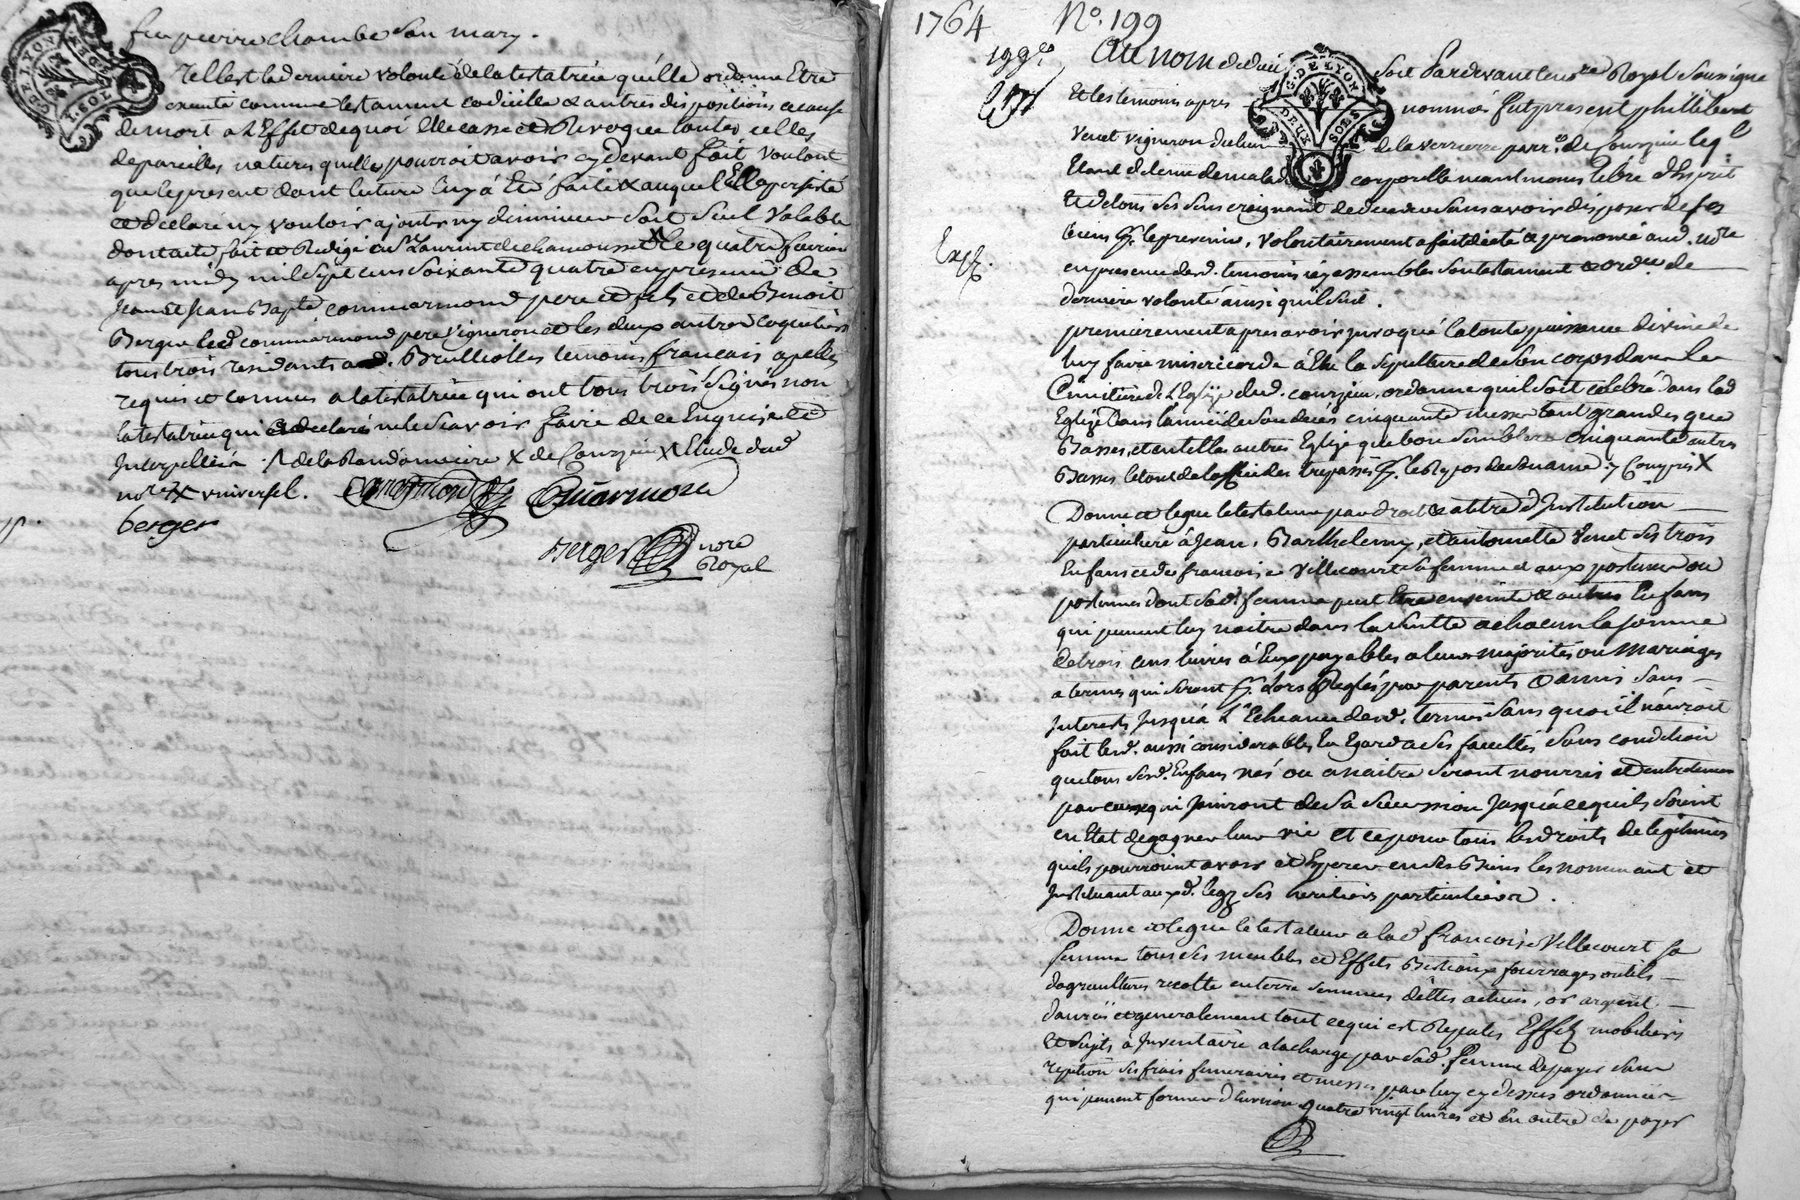 feu pierre chambe son mary.
Telle est la derniere volonté de la testatrice qu'elle ordonne Etre
executé comme testament codicille & autres dispositions a cause
de mort a L'Effet de quoi Elle casse et Revoque toutes celles
de pareilles natures quelle pourroit avoir cy devant fait voulant
que le present dont lecture luy a Eté faite & auquel Elle persiste
et declaré ny vouloir ajouter ny diminuer soit seul valable
dont acte fait et Redigé au St Laurent de chamousset X le quatre fevrier
apres midy mil sept cens soixante quatre en presence de
Jean et Jean Bapte commarmond pere et fils et de Benoit
Berger led commarmond pere vigneron et les deux autres
tous trois residants aud. Brullioles temoins francais apellés
requis et connus a la testatrice qui ont tous trois signés non
la testatrice qui a declaré ne le scavoir faire de ce Enquise et
Interpellée de la X de Courzieu X Etude dud
nore X universel. Commarmond Commarmond
berger
Berger nore
Royal
G. DE LYON
1764 No. 199
199e
Au nom de dieu soit Pardevant le nore Royal soussigné
Et les temoins apres nommés fut present philibert
Venet vigneron du lieu de la verriere parr.e de Courzieu leql
Etant detenu de maladie corporelle neantmoins libre d'Esprit
Et de tous ses sens craignant de deceder sans avoir disposer de ses
Exp.
biens pr. le prevenir, volontairement a fait dicté & prononcé aud. nore
en presence desd. temoins icy assemblés son testament & ordce de
derniere volonté ainsi quil suit.
G. DE LYON
DEUX SOLS
premierement apres avoir invoqué la toute puissance divine de
luy faire misericorde a Elu la sepulture de son corps dans le
Cimitiere de L'Eglise dud. courzieu, ordonne quil soit celebré dans lad
Eglize dans l'année de son deces cinquante messes tant grandes que
Basses, et en telle autres Eglize que bon semblera cinquante autres
Basses le tout de loffice des trepassés pr. le Repos de son ame. y Compris X
Donne et legue le testateur par droit & a titre d'Institution
particuliere à Jean, Barthelemy, et antoinette Venet ses trois
Enfans et de francoise Villecourt sa femme et aux postumes ou
postumes dont sad. femme peut Etre enceinte & autres Enfans
qui peuvent luy naitre dans la suitte a chacun la somme
de trois cens livres à Eux payables a leurs majorités ou Mariages
a termes qui seront pr. Lors Reglés par parents & amis sans
Interets Jusquà L'Echeance desd. termes sans quoi il n'auroit
fait lesd. aussi considerables En Egard a ses facultés sous condition
que tous sesd. Enfans nés ou a naitre seront nourris et entretenus
par ceux qui Jouiront de sa succession Jusquà ce quils soient
en Etat de gagner leur vie et ce pour tous les droits de legitimes
quils pourroint avoir et Esperer en ses Biens les nommant et
Instituant auxd. legs ses heritiers particuliers.
Donne et legue le testateur a lad francoise Villecourt sa
femme tous ses meubles et Effets Bestiaux fourrages outils
dagricultures recolte en terre semences dettes actives, or argent
danrées et generalement tout ce qui est Reputés Effets mobiliers
et sujets à Inventaire a la charge par sad. femme de payer sans
repetition ses frais funeraires et messes par luy cy dessus ordonnées
qui peuvent former d'Environ quatre vingt livres et En outre de payer